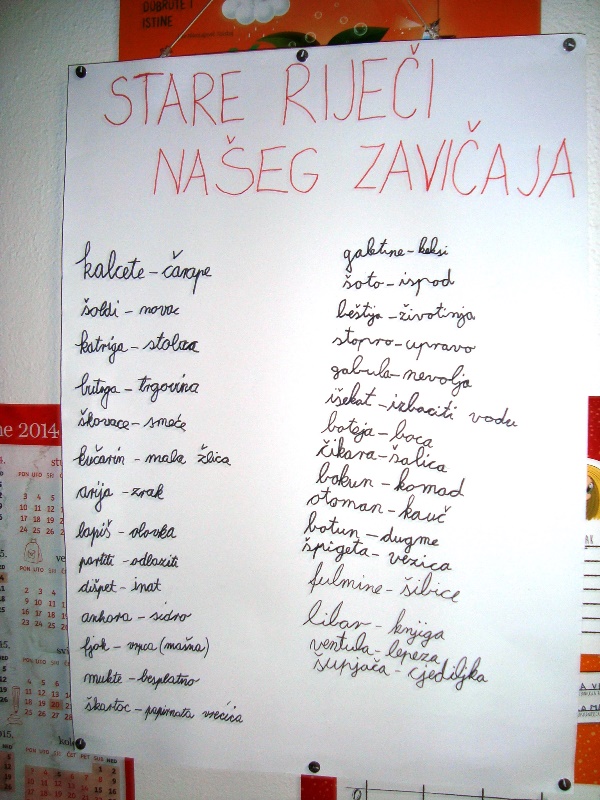 DOBRUTE I
ISTINE
STARE RIJEČI
NAŠEG ZAVIČAJA
kalcete – čarape
šoldi – novac
katriga – stolac
butiga – trgovina
škovace – smeće
kučarin – mala žlica
arija – zrak
lapiš – olovka
partiti – odlaziti
dišpet – inat
ankora – sidro
fjok – vrpca (mašna)
mukte – besplatno
škartoc – papirnata vrećica
galetine – keksi
šoto – ispod
beštija – životinja
stopro – upravo
gabula – nevolja
išekat – izbaciti vodu
boteja – boca
čikara – šalica
bokun – komad
otoman – kauč
botun – dugme
špigeta – vezica
fulmine – šibice
libar – knjiga
ventula – lepeza
šupjača – cjediljka
ne 2014